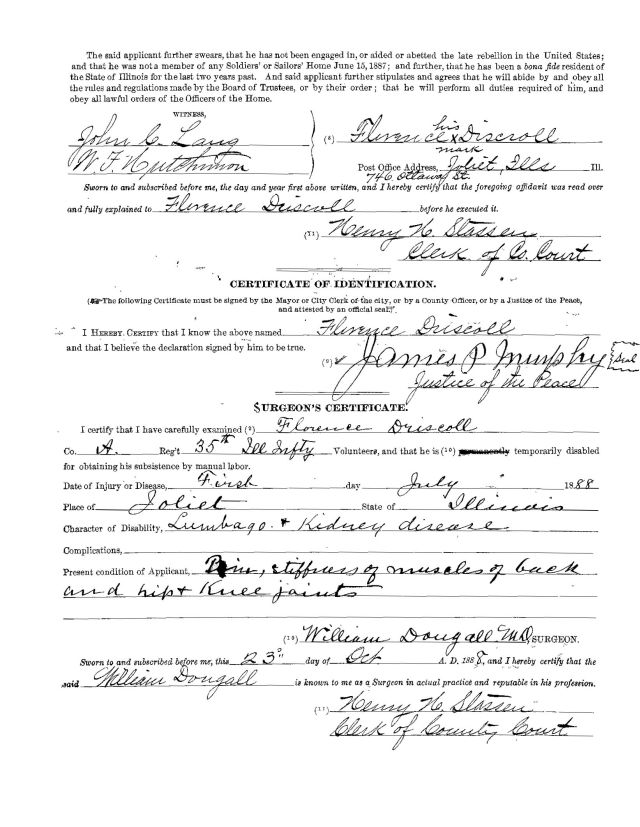 The said applicant further swears, that he has not been engaged in, or aided or abetted the late rebellion in the United States;
and that he was not a member of any Soldiers' or Sailors' Home June 15, 1887; and further, that he has been a bona fide resident of
the State of Illinois for the last two years past. And said applicant further stipulates and agrees that he will abide by and obey all
the rules and regulations made by the Board of Trustees, or by their order; that he will perform all duties required of him, and
obey all lawful orders of the Officers of the Home.
WITNESS,
his
John C. Lang (8) Florence x Discroll
mark
W. F. Hutchinson Post Office Address, Joliet, Ills Ill.
746 Ottawa St.
Sworn to and subscribed before me, the day and year first above written, and I hereby certify that the foregoing affidavit was read over
and fully explained to Florence Driscoll before he executed it.
(11) Henry N. Stassen
Clerk of Co. Court
CERTIFICATE OF IDENTIFICATION.
The following Certificate must be signed by the Mayor or City Clerk of the city, or by a County Officer, or by a Justice of the Peace,
and attested by an official seal.
I HEREBY CERTIFY that I know the above named Florence Driscoll
and that I believe the declaration signed by him to be true.
(9) James P Murphy Seal
Justice of the Peace
SURGEON'S CERTIFICATE.
I certify that I have carefully examined (2) Florence Driscoll
Co. A. Reg't 35th Ill Infty Volunteers, and that he is (10) permanently temporarily disabled
for obtaining his subsistence by manual labor.
Date of Injury or Disease, First day July 1888
Place of Joliet State of Illinois
Character of Disability, Lumbago & Kidney disease
Complications,
Present condition of Applicant, Pain, stiffness of muscles of back
and hip & Knee joints
(10) William Dougall M.D, SURGEON.
Sworn to and subscribed before me, this 23" day of Oct A. D. 1888, and I hereby certify that the
said William Dougall is known to me as a Surgeon in actual practice and reputable in his profession.
(11) Henry N. Stassen
Clerk of County Court